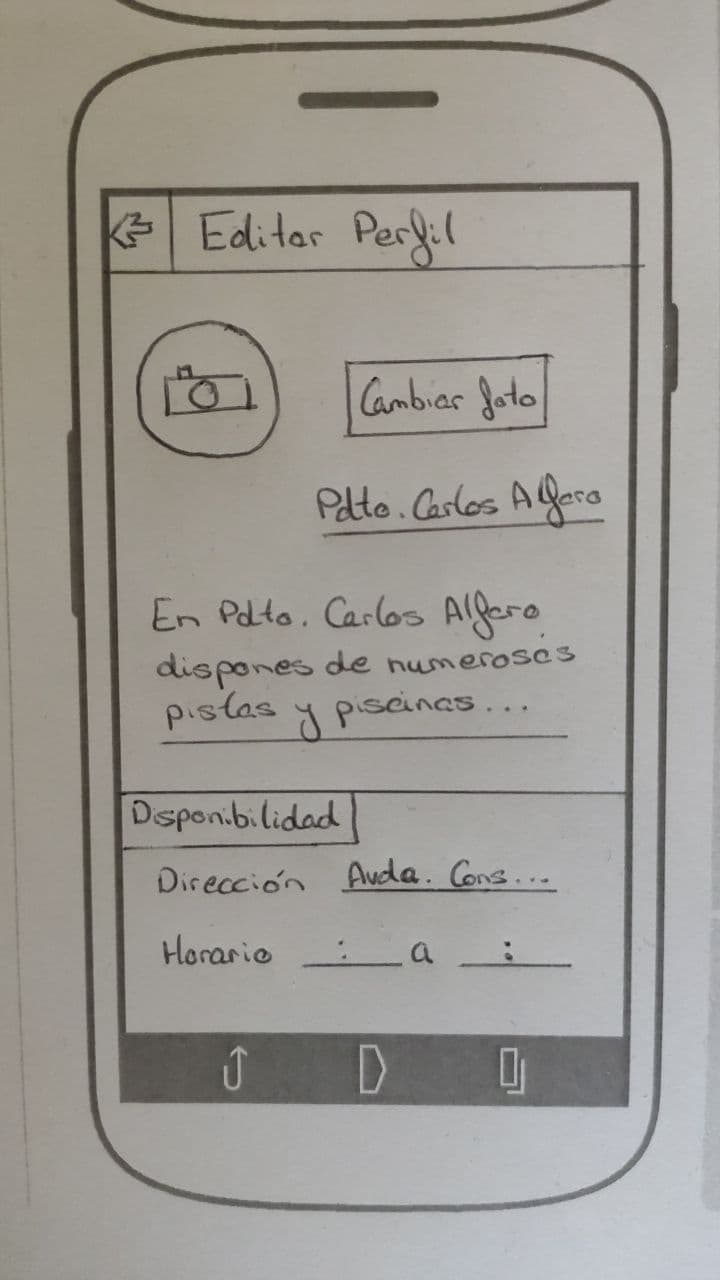 Editar Perfil
Cambiar foto
Pdto. Carlos Alfaro
En Pdto. Carlos Alfaro
dispones de numerosas
pistas y piscinas...
Disponibilidad
Dirección Avda. Cons...
Horario : a :